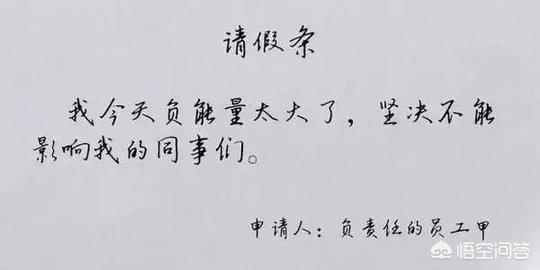 请假条
我今天负能量太大了，坚决不能
影响我的同事们。
申请人：负责任的员工甲
悟空问答